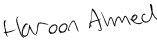 Haroon Ahmed